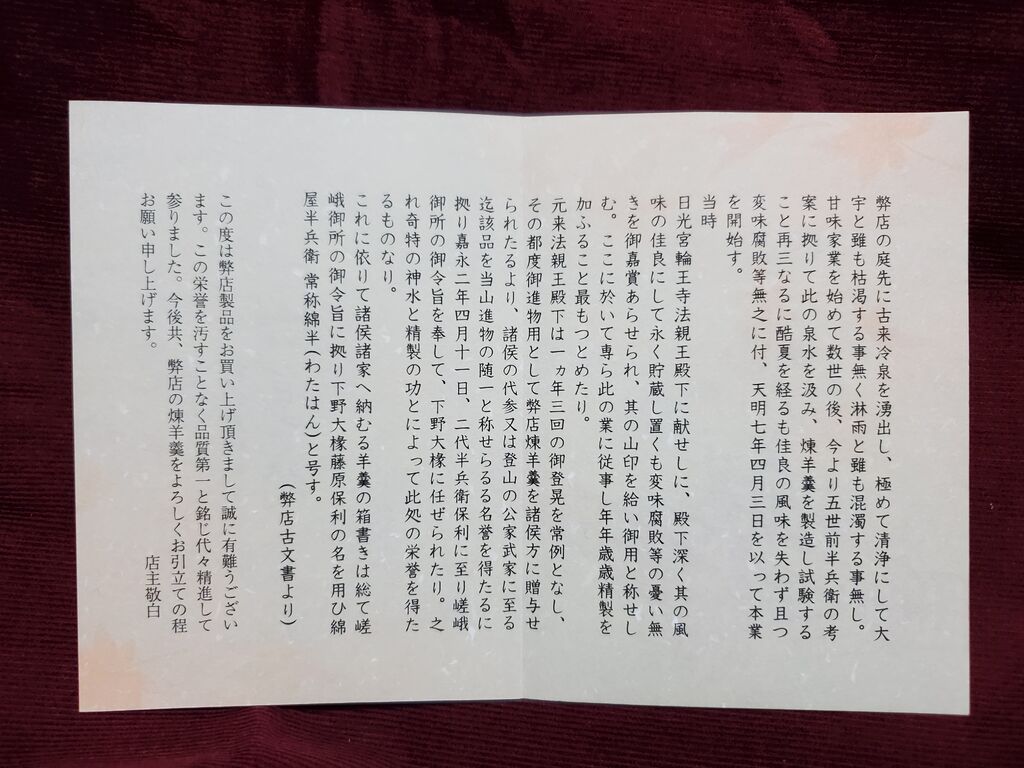 弊店の庭先に古来冷泉を湧出し、極めて清浄にして大
宇と雖も枯渇する事無く淋雨と雖も混濁する事無し。
甘味家業を始めて数世の後、今より五世前半兵衛の考
案に拠りて此の泉水を汲み、煉羊羹を製造し試験する
こと再三なるに酷夏を経るも佳良の風味を失わず且つ
変味腐敗等無之に付、天明七年四月三日を以って本業
を開始す。
当時
日光宮輪王寺法親王殿下に献せしに、殿下深く其の風
味の佳良にして永く貯蔵し置くも変味腐敗等の憂い無
きを御嘉賞あらせられ、其の山印を給い御用と称せし
む。ここに於いて専ら此の業に従事し年年歳歳精製を
加ふること最もつとめたり。
元来法親王殿下は一ヵ年三回の御登晃を常例となし、
その都度御進物用として弊店煉羊羹を諸侯方に贈与せ
られたるより、諸侯の代参又は登山の公家武家に至る
迄該品を当山進物の随一と称せらるる名誉を得たるに
拠り嘉永二年四月十一日、二代半兵衛保利に至り嵯峨
御所の御令旨を奉して、下野大椽に任ぜられたり。之
れ奇特の神水と精製の功とによって此処の栄誉を得た
るものなり。
これに依りて諸侯諸家へ納むる羊羹の箱書きは総て嵯
峨御所の御令旨に拠り下野大椽藤原保利の名を用ひ綿
屋半兵衛 常称綿半(わたはん)と号す。
(弊店古文書より)
この度は弊店製品をお買い上げ頂きまして誠に有難うござい
ます。この栄誉を汚すことなく品質第一と銘じ代々精進して
参りました。今後共、弊店の煉羊羹をよろしくお引立ての程
お願い申し上げます。
店主敬白